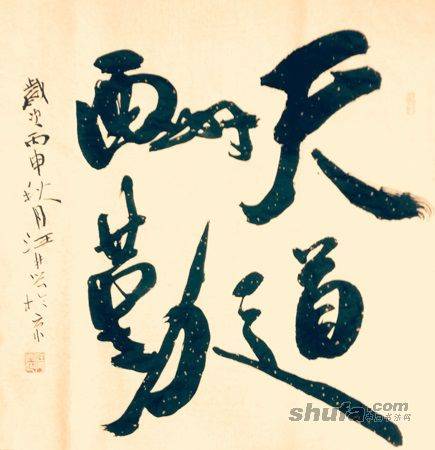 天道
酬勤
歲次丙申秋月江於京
shufa.com